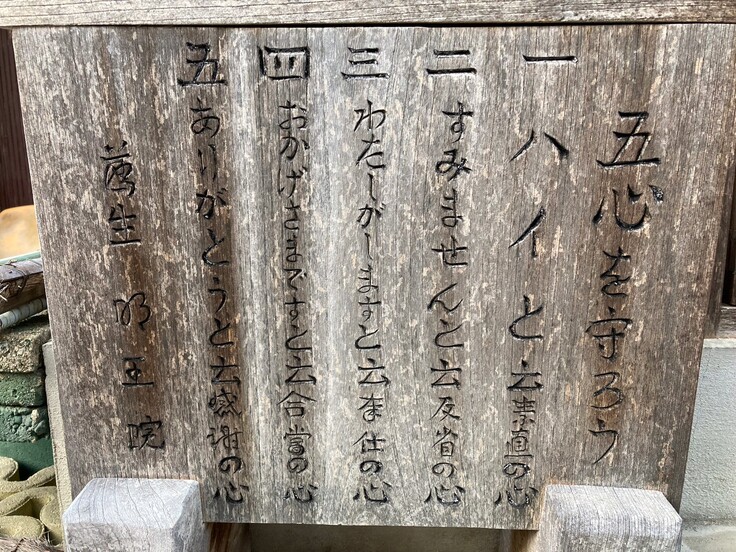 五心を守ろう
一 ハイと云素直の心
二 すみませんと云反省の心
三 わたしがしますと云奉仕の心
四 おかげさまですと云合掌の心
五 ありがとうと云感謝の心
生 明王院